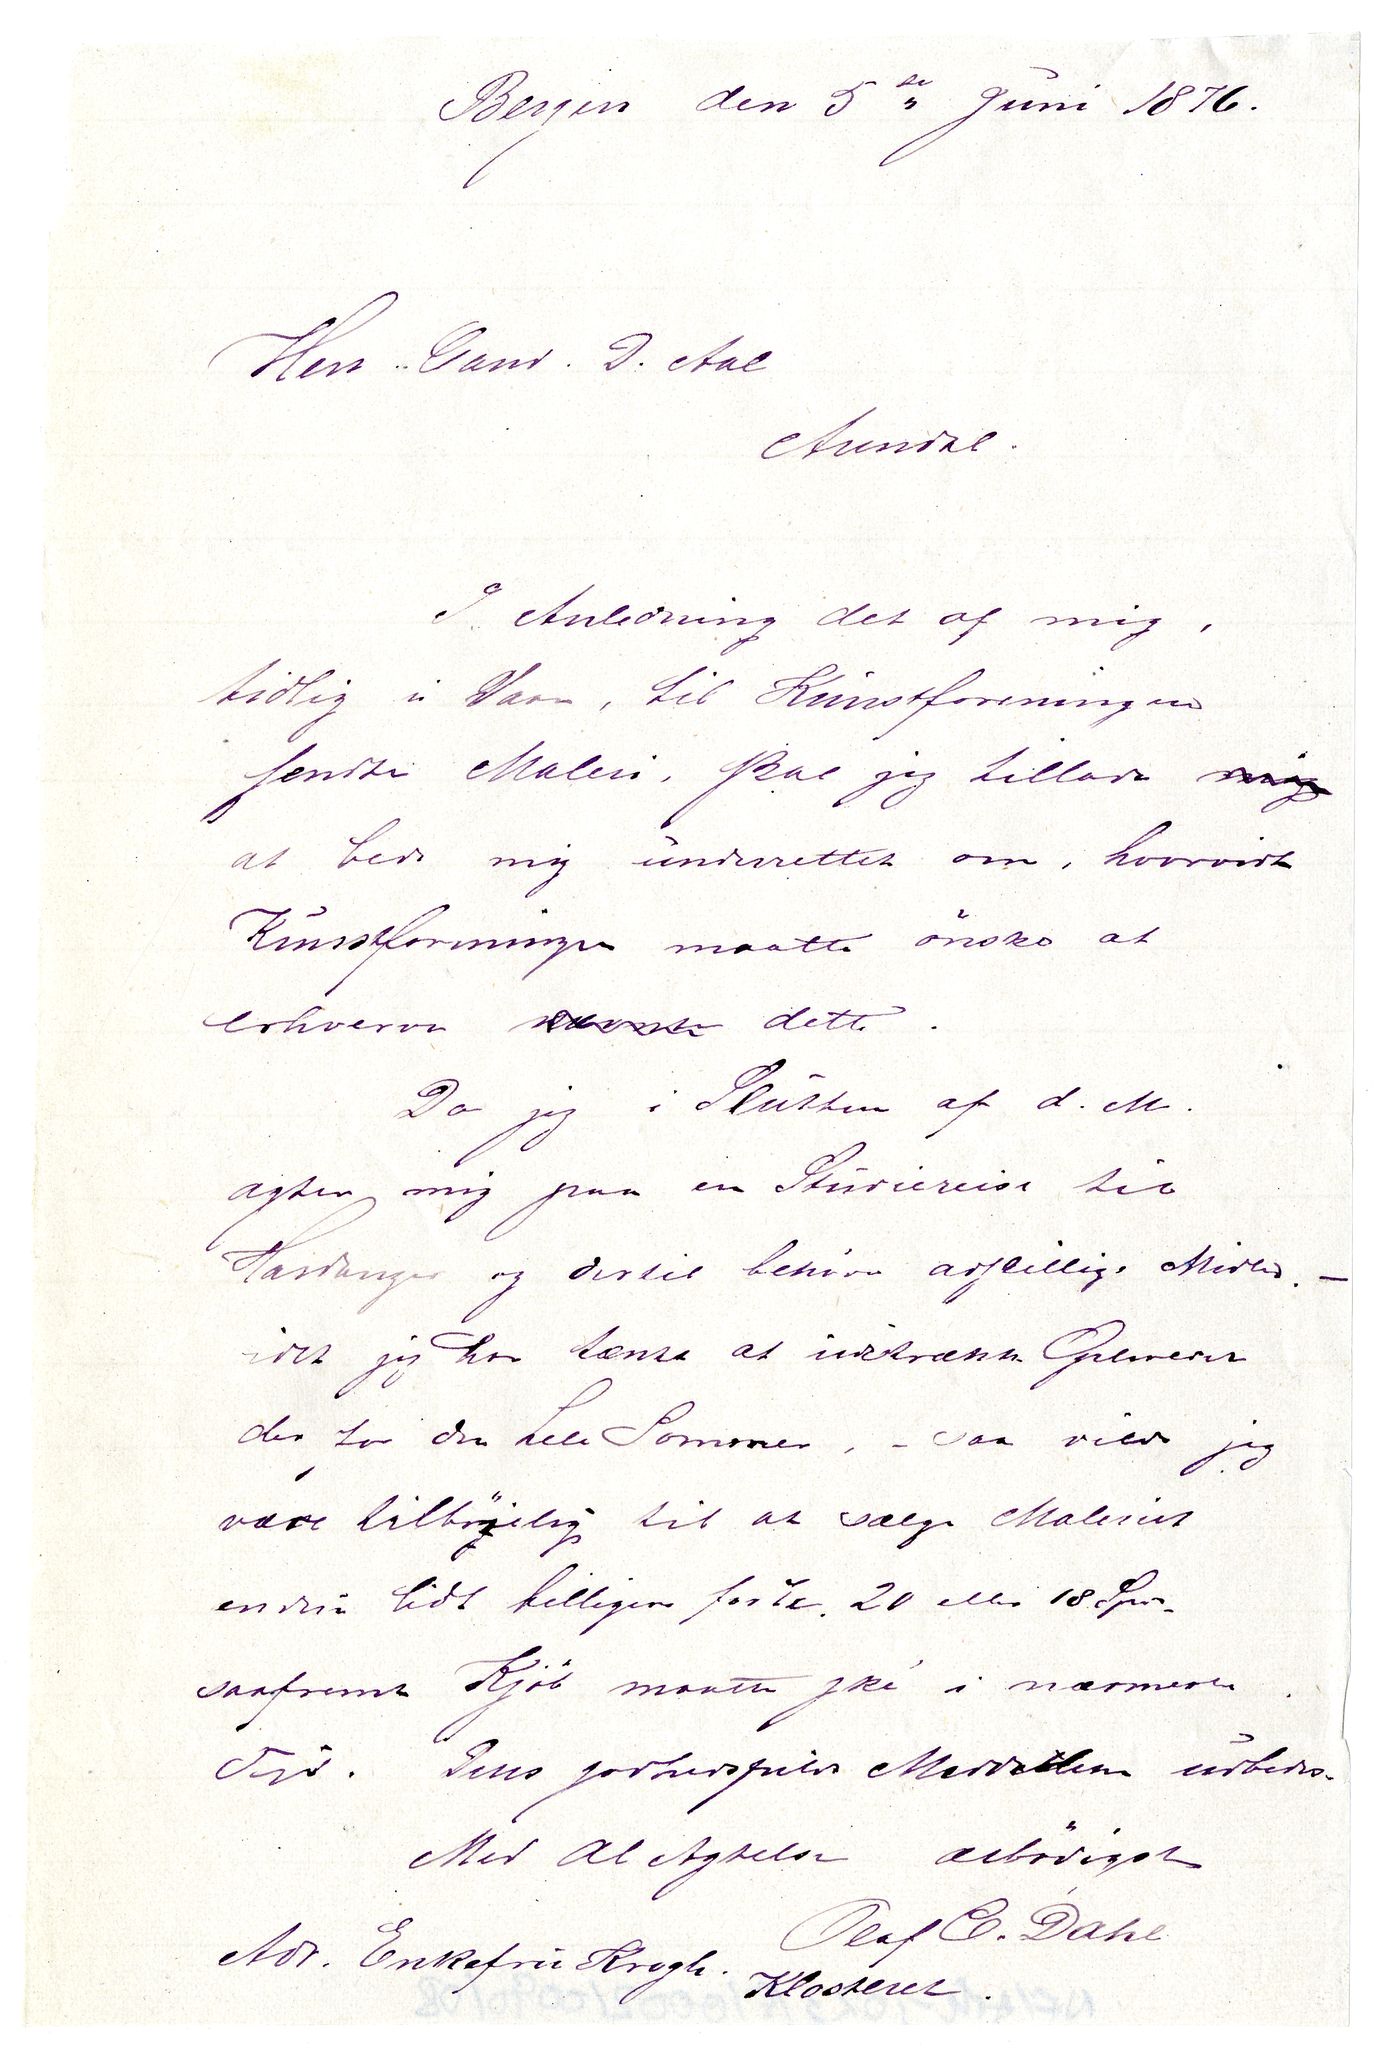 Bergen den 5te Juni 1876.
Herr Cand. D. Aal
Arendal.
I Anledning det af mig,
tidlig i Vaar, til Kunstforeningen
sendte Maleri, skal jeg tillade mig
at bede mig underrettet om, hvorvidt
Kunstforeningen maatte önske at
erhverve dette.
Da jeg i Slutten af d. M.
agter mig paa en Studiereise til
Hardanger og dertil behöver adskillige Midler. –
idet jeg har tænkt at udstrække Opholdet
der for den hele Sommer, – saa vilde jeg
være tilböjelig til at sælge Maleriet
endnu lidt billigere 20 eller 18 Spd.
saafremt Kjöb maatte ske i nærmeste
Tid. Deres godhedsfulde Meddelelse udbedes.
Med Al Agtelse ærbödigst
Olaf C. Dahl
Adr. Enkefru Krogh. Klosteret.